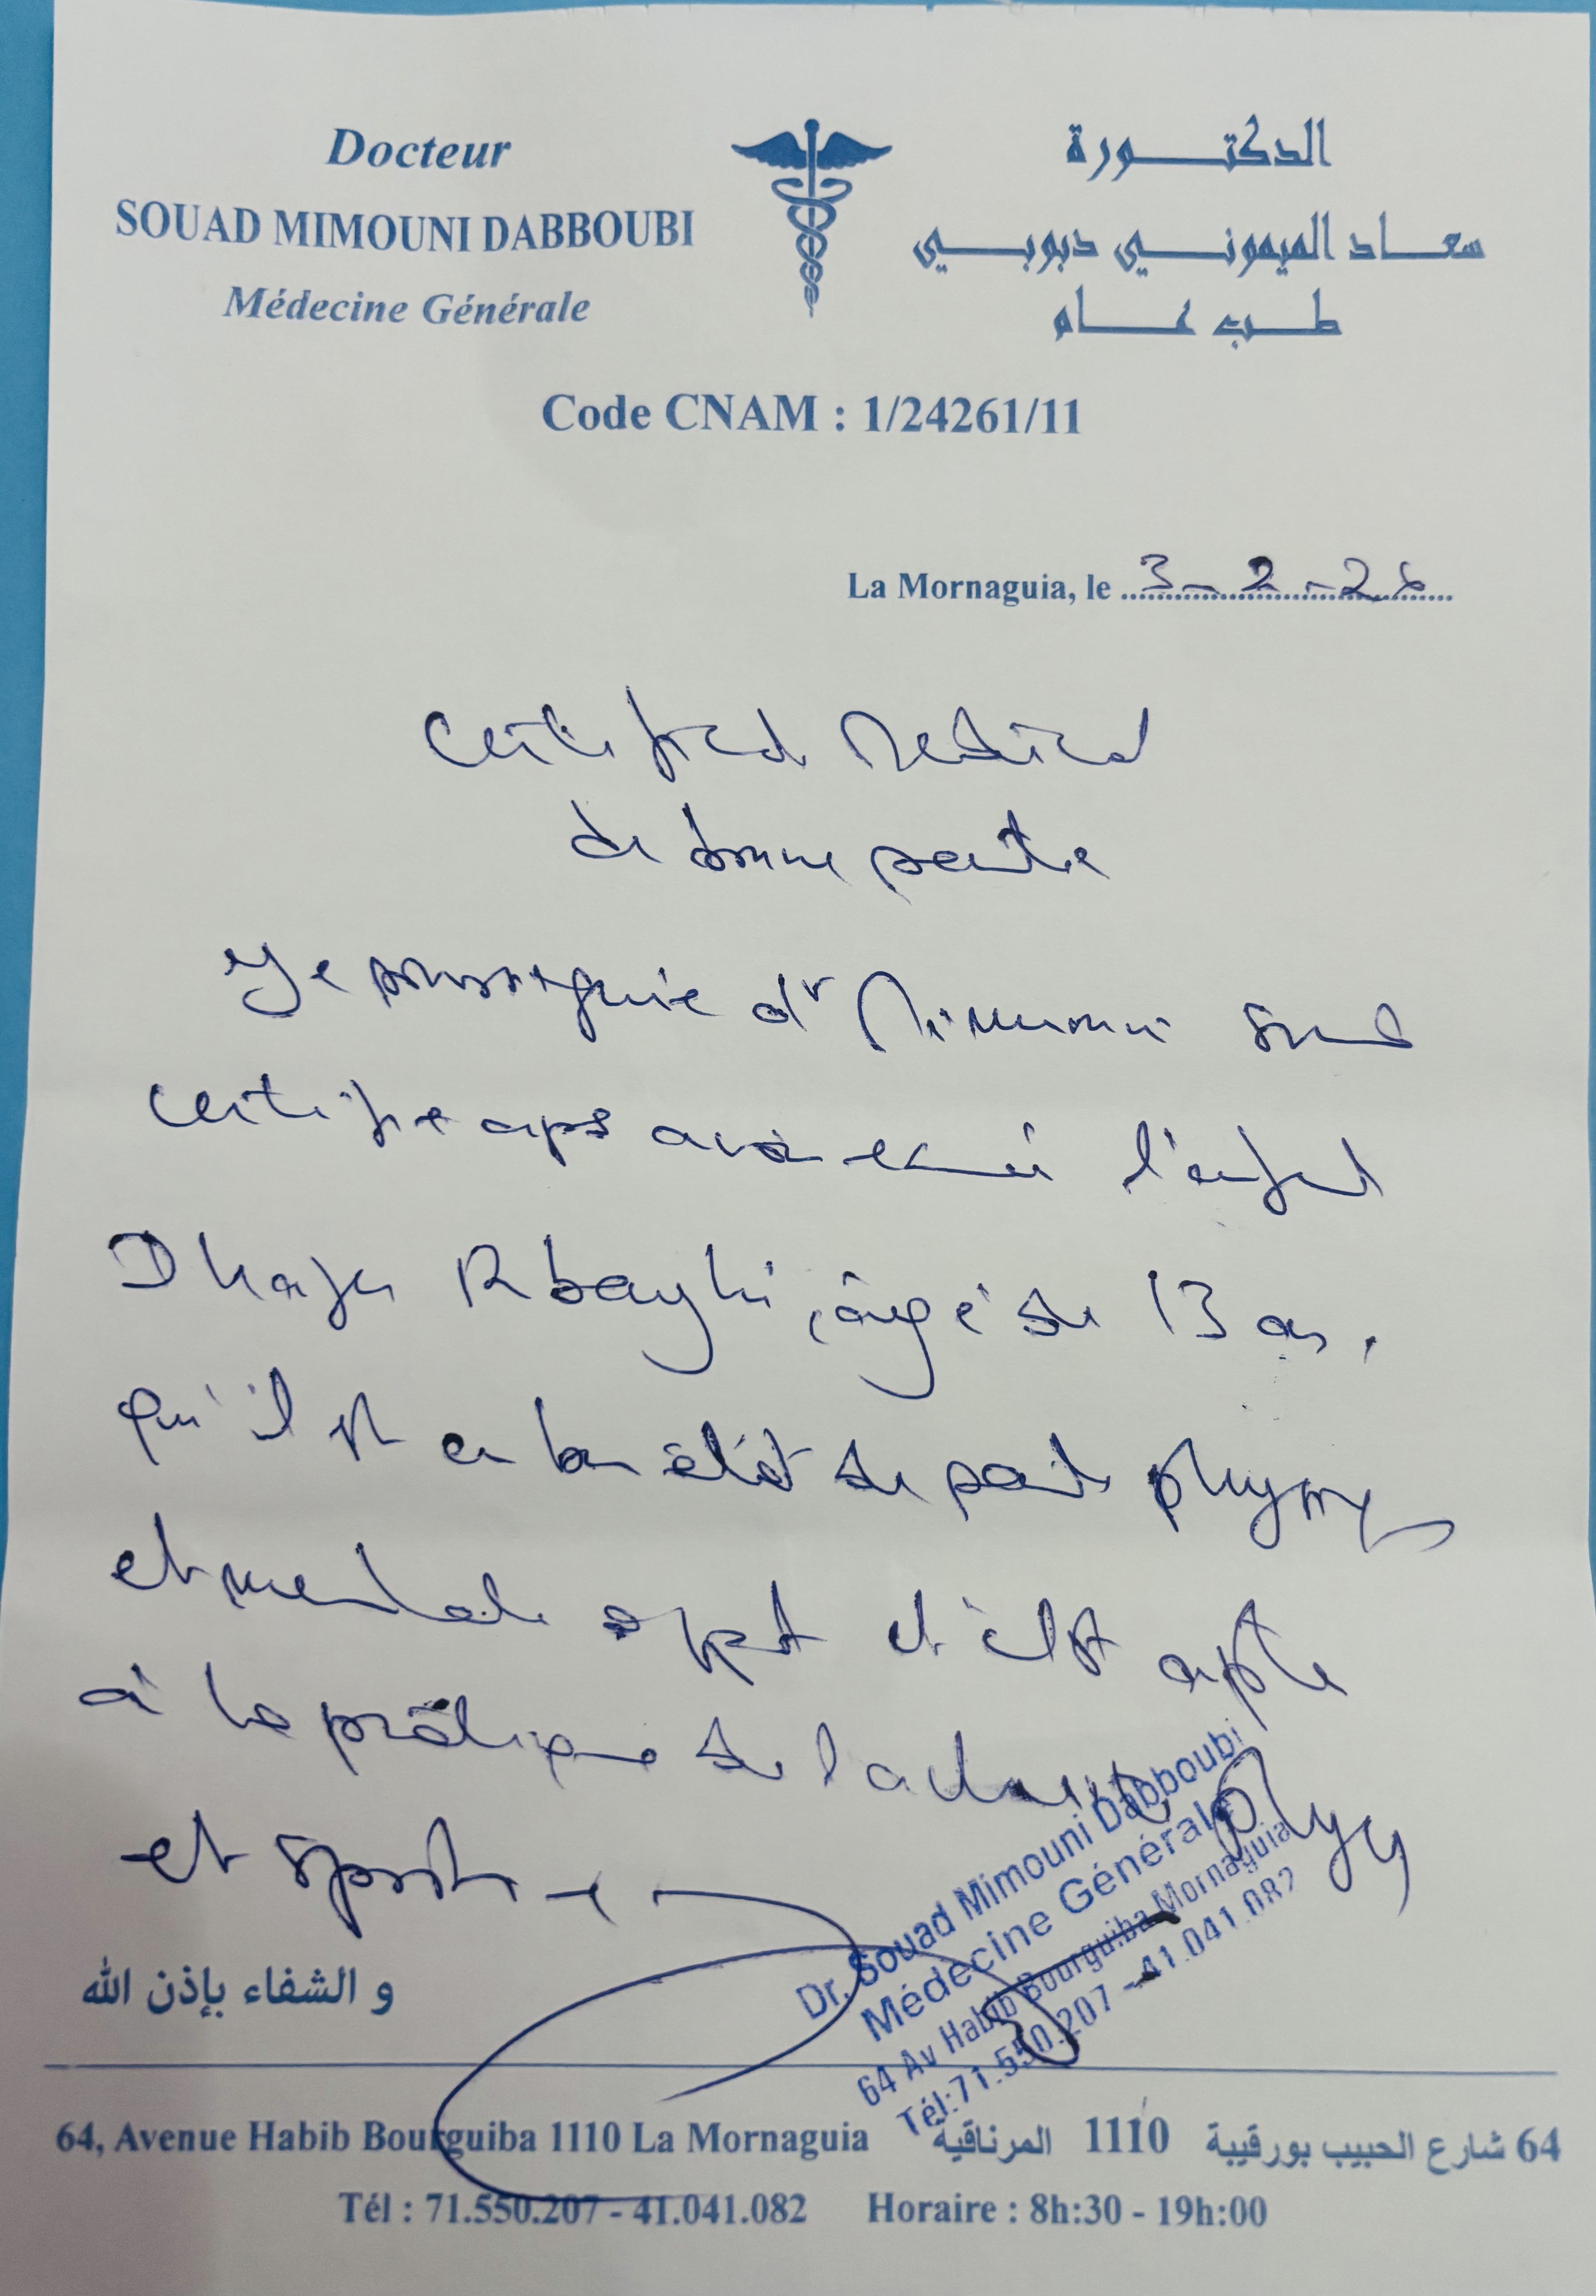 Docteur
SOUAD MIMOUNI DABBOUBI
Médecine Générale
الدكتورة
سعاد الميموني دبوبي
طب عام
Code CNAM : 1/24261/11
La Mornaguia, le 3-2-26
Certificat Médical
de bonne santé
Je soussignée dr Mimouni Souad
certifie après avoir examiné l'enfant
Dhafer Rbayhi, âgé de 13 ans,
qu'il est en bon état de santé physique
et mentale apparent et il est apte
à la pratique de l'activité physique
et sportive
Dr. Souad Mimouni Dabboubi
Médecine Générale
64 Av Habib Bourguiba Mornaguia
Tél:71.550.207 - 41.041.082
و الشفاء بإذن الله
64, Avenue Habib Bourguiba 1110 La Mornaguia
64 شارع الحبيب بورقيبة 1110 المرناقية
Tél : 71.550.207 - 41.041.082 Horaire : 8h:30 - 19h:00